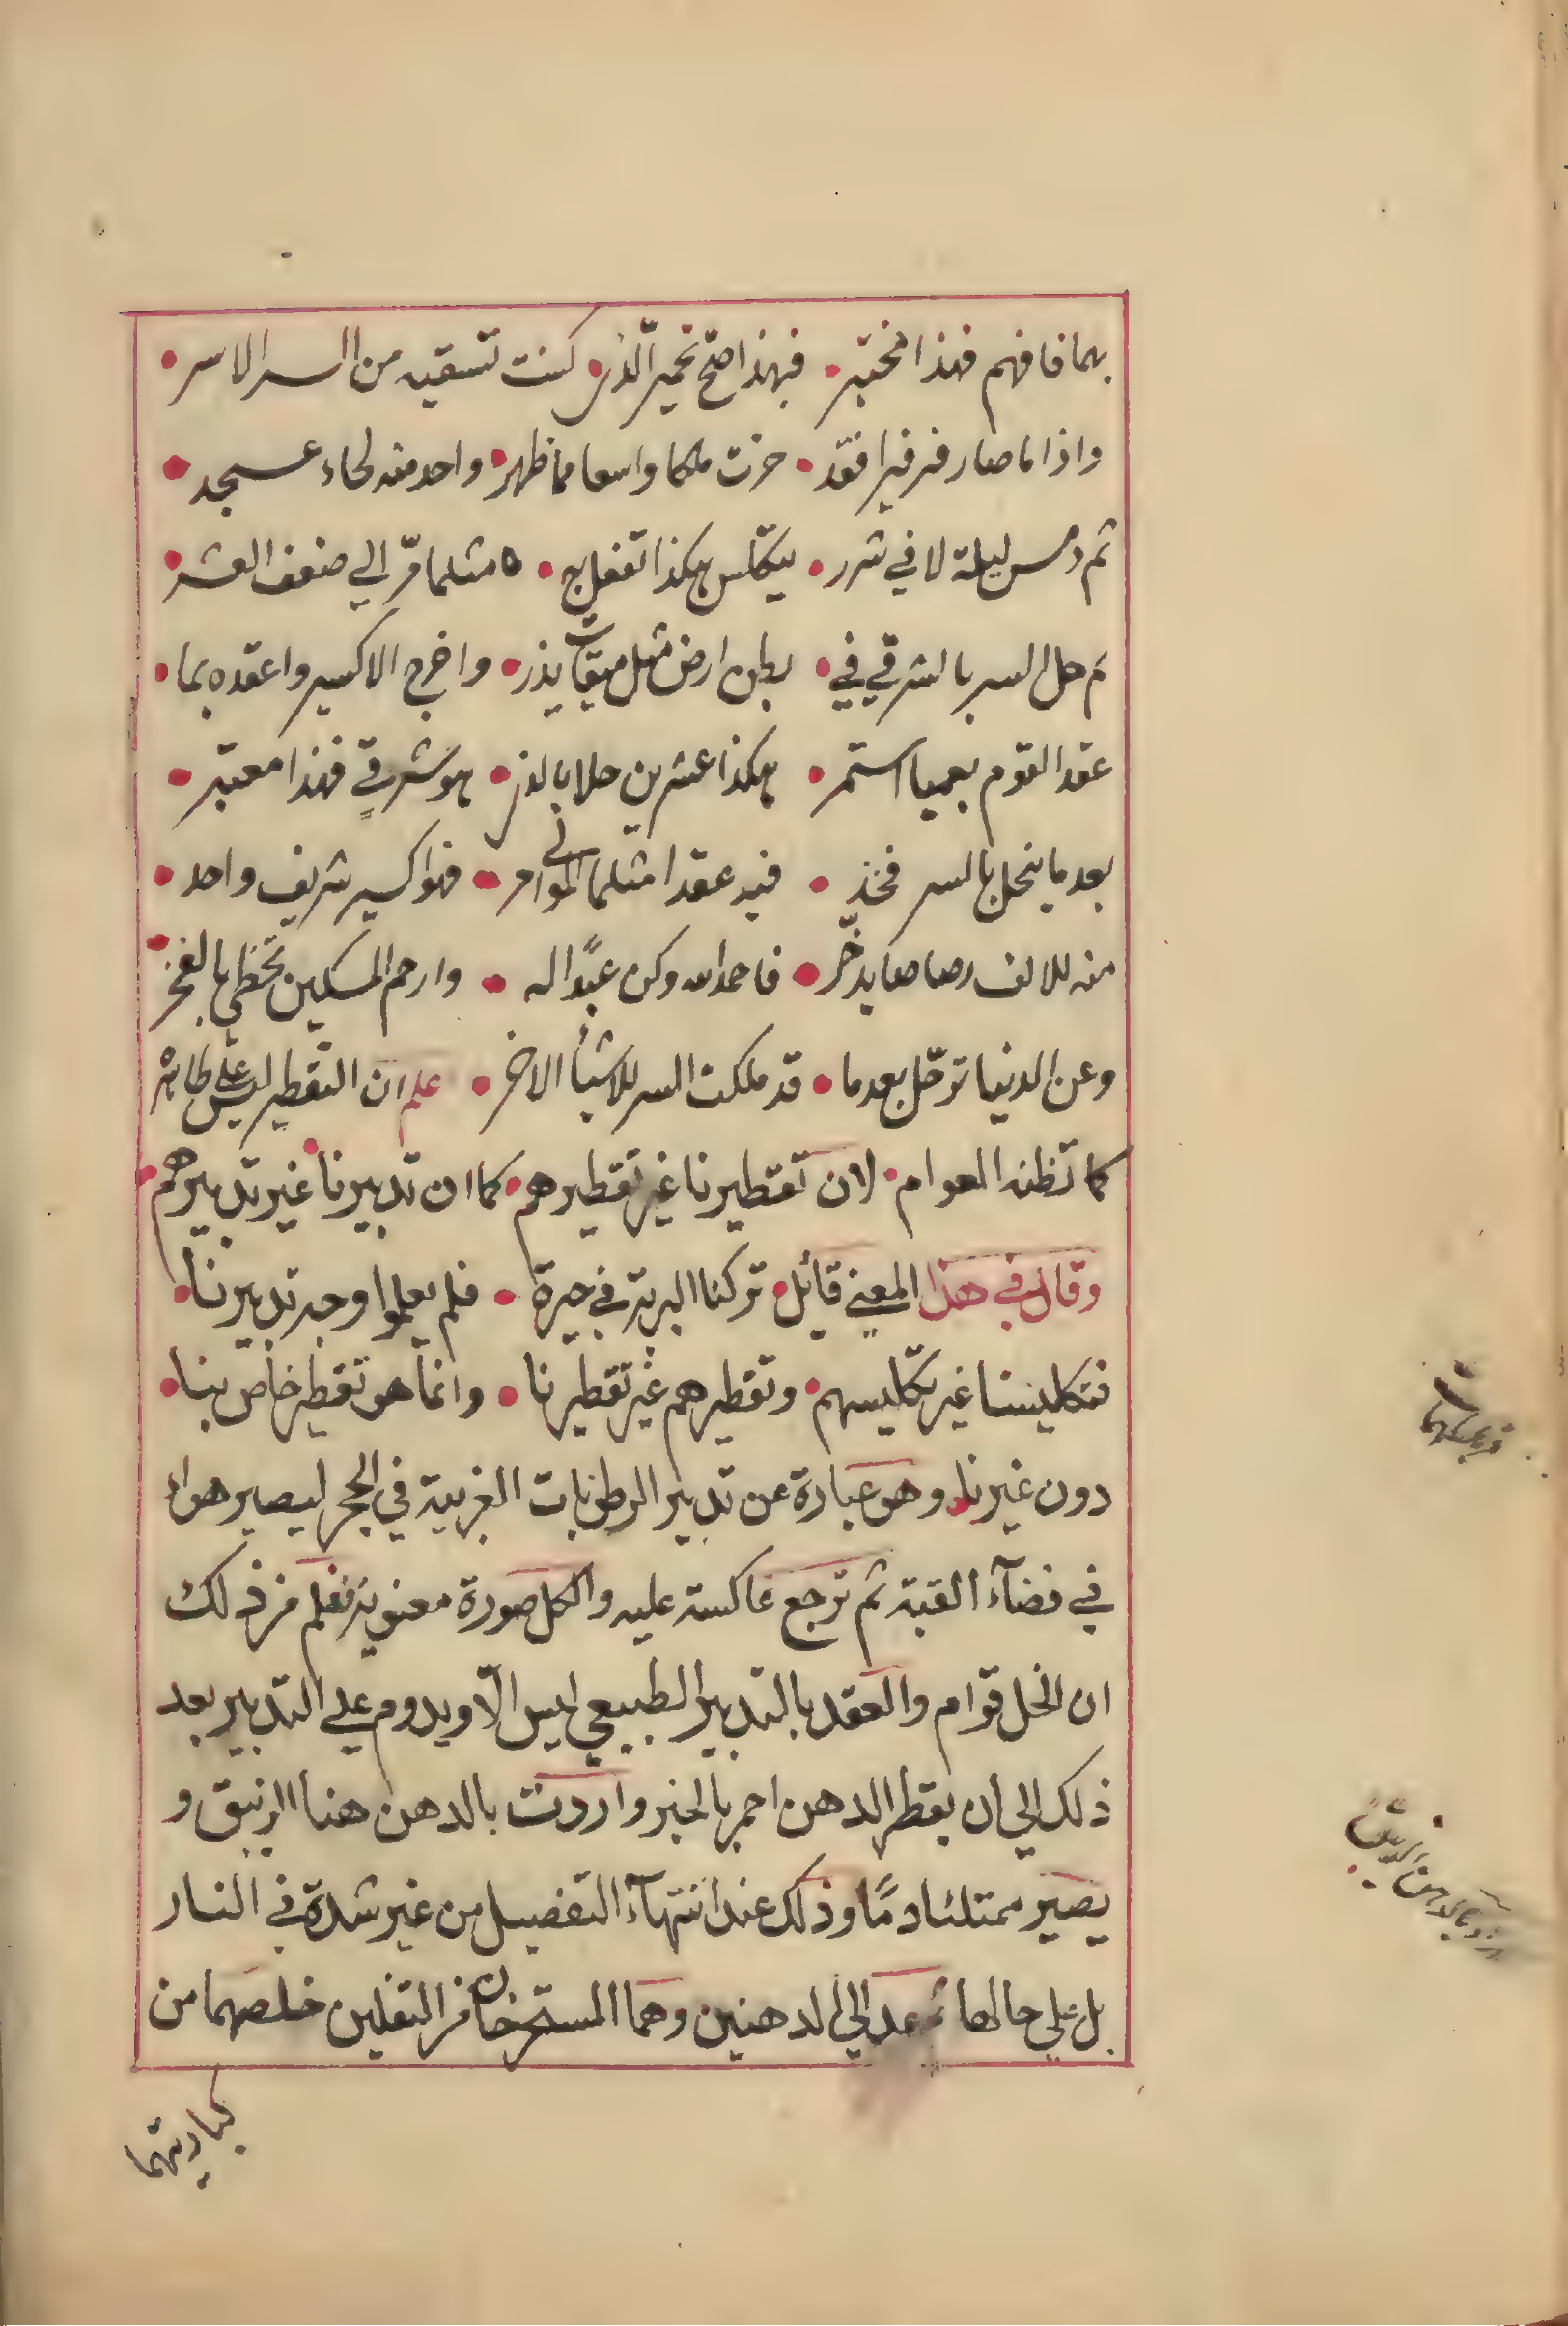 بهما فافهم فهذا مختبر • فبهذا صح تخمير الذى • كنت تسقيه من السر الاسر •
واذا ما صار فرفيرا فقد • حزت ملكا واسعا مما ظهر • واحد منه لحاء عسجد •
ثم دمس ليلة لا في شرر • يتكلس هكذا تفعل به • مثلما مر الي ضعف العشر •
ثم حل السر بالشرقي في • بطن ارض مثل ميقات يذر • واخرج الاكسير واعقده بما •
عقد القوم بعميا استمر • هكذا عشرين حلا بالذى • هو شرقي فهذا معتبر •
بعد ما ينحل بالسر فخذ • فيه عقدا مثلما في المواد مر • فهو اكسير شريف واحد •
منه للالف رصاصا يدخر • فاحمد الله وكن عبدا له • وارحم المسكين تحظي بالفخر •
وعن الدنيا ترحل بعدما • قد ملكت السر للاشيأ الاخر • علم ان التقطير ليس علي ظاهره
كما تظنه العوام • لان تقطيرنا غير تقطيرهم • كما ان تدبيرنا غير تدبيرهم •
وقال في هذا المعني قائل • تركنا البرية في حيرة • فلم يعلموا وجه تدبيرنا •
فتكليسنا غير تكليسهم • وتقطيرهم غير تقطيرنا • وانما هو تقطير خاص بنا •
دون غيرنا • وهو عبارة عن تدبير الرطوبات الغريبة في الحجر ليصير هواء
في فضآء القبة ثم ترجع عاكسة عليه والكل صورة معنوية فعلم من ذلك
ان الحل قوام والعقد بالتدبير الطبيعي ليس الّا ويدوم علي التدبير بعد
ذلك الي أن يقطر الدهن احمر بالحبر واردت بالدهن هنا الزنبق و
يصير ممتلئا دمًا وذلك عند انتهآء التفصيل من غير شدة في النار
بل علي حالها ثم عمد الي الدهنين وهما المستخرجان من الثفلين خلصهما من
كباريتهما